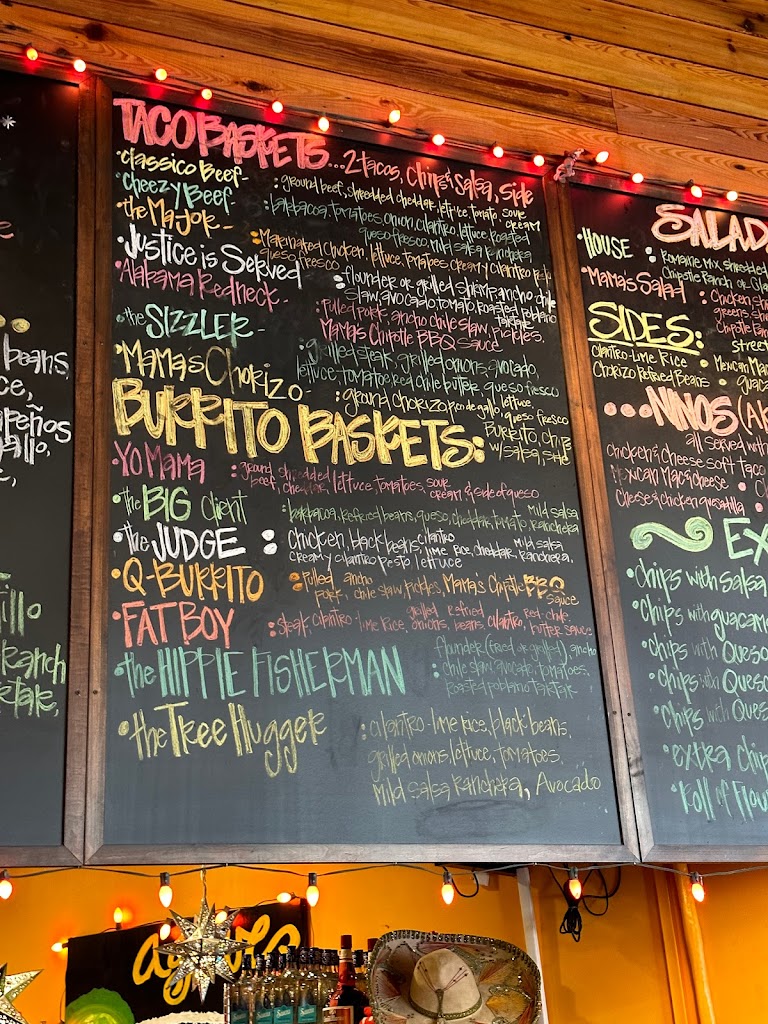 TACO BASKETS...2 tacos, Chips & Salsa, Side
•Classico Beef- : ground beef, shredded cheddar, lettuce, tomato, sour cream
•Cheezy Beef- : barbacoa, tomatoes, onion, cilantro, lettuce, roasted
queso fresco, mild salsa ranchera
•the Major- : Marinated chicken, lettuce, tomatoes, creamy cilantro
queso fresco
•Justice is Served : flounder or grilled shrimp, ancho chile
slaw, avocado, tomato, roasted poblano
tartar
•Alabama Redneck- : Pulled pork, ancho chile slaw, pickles,
Mama's Chipotle BBQ sauce
•the SIZZLER- : grilled steak, grilled onions, avocado,
lettuce, tomato, red chile butter, queso fresco
•MAMAS Chorizo- : ground chorizo, pico de gallo, lettuce,
queso fresco
BURRITO BASKETS: BURRITO, Chips
w/ salsa, side
•YO MAMA : ground beef, shredded cheddar, lettuce, tomatoes, sour cream & side of queso
•the BIG Client : barbacoa, refried beans, queso, cheddar, tomato, mild salsa ranchera
•the JUDGE : Chicken, black beans, cilantro lime rice, cheddar, mild salsa ranchera,
creamy cilantro pesto, lettuce
•Q-BURRITO : Pulled pork, ancho chile slaw, pickles, Mama's Chipotle BBQ sauce
•FATBOY : Steak, cilantro-lime rice, grilled onions, refried beans, cilantro, red chile butter sauce
•the HIPPIE FISHERMAN : flounder (fried or grilled), ancho
chile slaw, avocado, tomatoes,
roasted poblano tartar
•the Tree Hugger : cilantro-lime rice, black beans,
grilled onions, lettuce, tomatoes,
mild salsa ranchera, Avocado
SALAD
•HOUSE : Romaine mix, shredded
Chipotle Ranch or
•Mama's Salad : Chicken
greens
Chipotle
street
SIDES:
Cilantro-Lime Rice • Mexican
Chorizo Refried Beans •
...NINOS
all served with
Chicken & Cheese Soft Taco
Mexican Mac & Cheese •
Cheese & Chicken quesadilla •
EX
•Chips with salsa
•Chips with guacam
•Chips with Queso
•Chips with Queso
•Chips with Ques
•extra Chip
•Roll of Flou
beans,